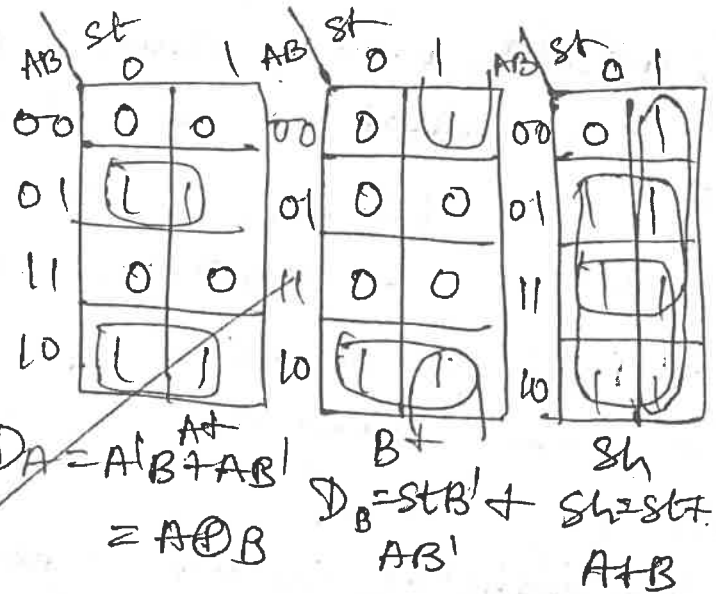 AB St 0 1
00 0 0
01 1 1
11 0 0
10 1 1
A+
D_A = A'B + AB'
= A⊕B
AB St 0 1
00 0 1
01 0 0
11 0 0
10 1 1
B+
D_B = StB' +
AB'
AB St 0 1
00 0 1
01 1 1
11 1 1
10 1 1
Sh
Sh = St +
A+B